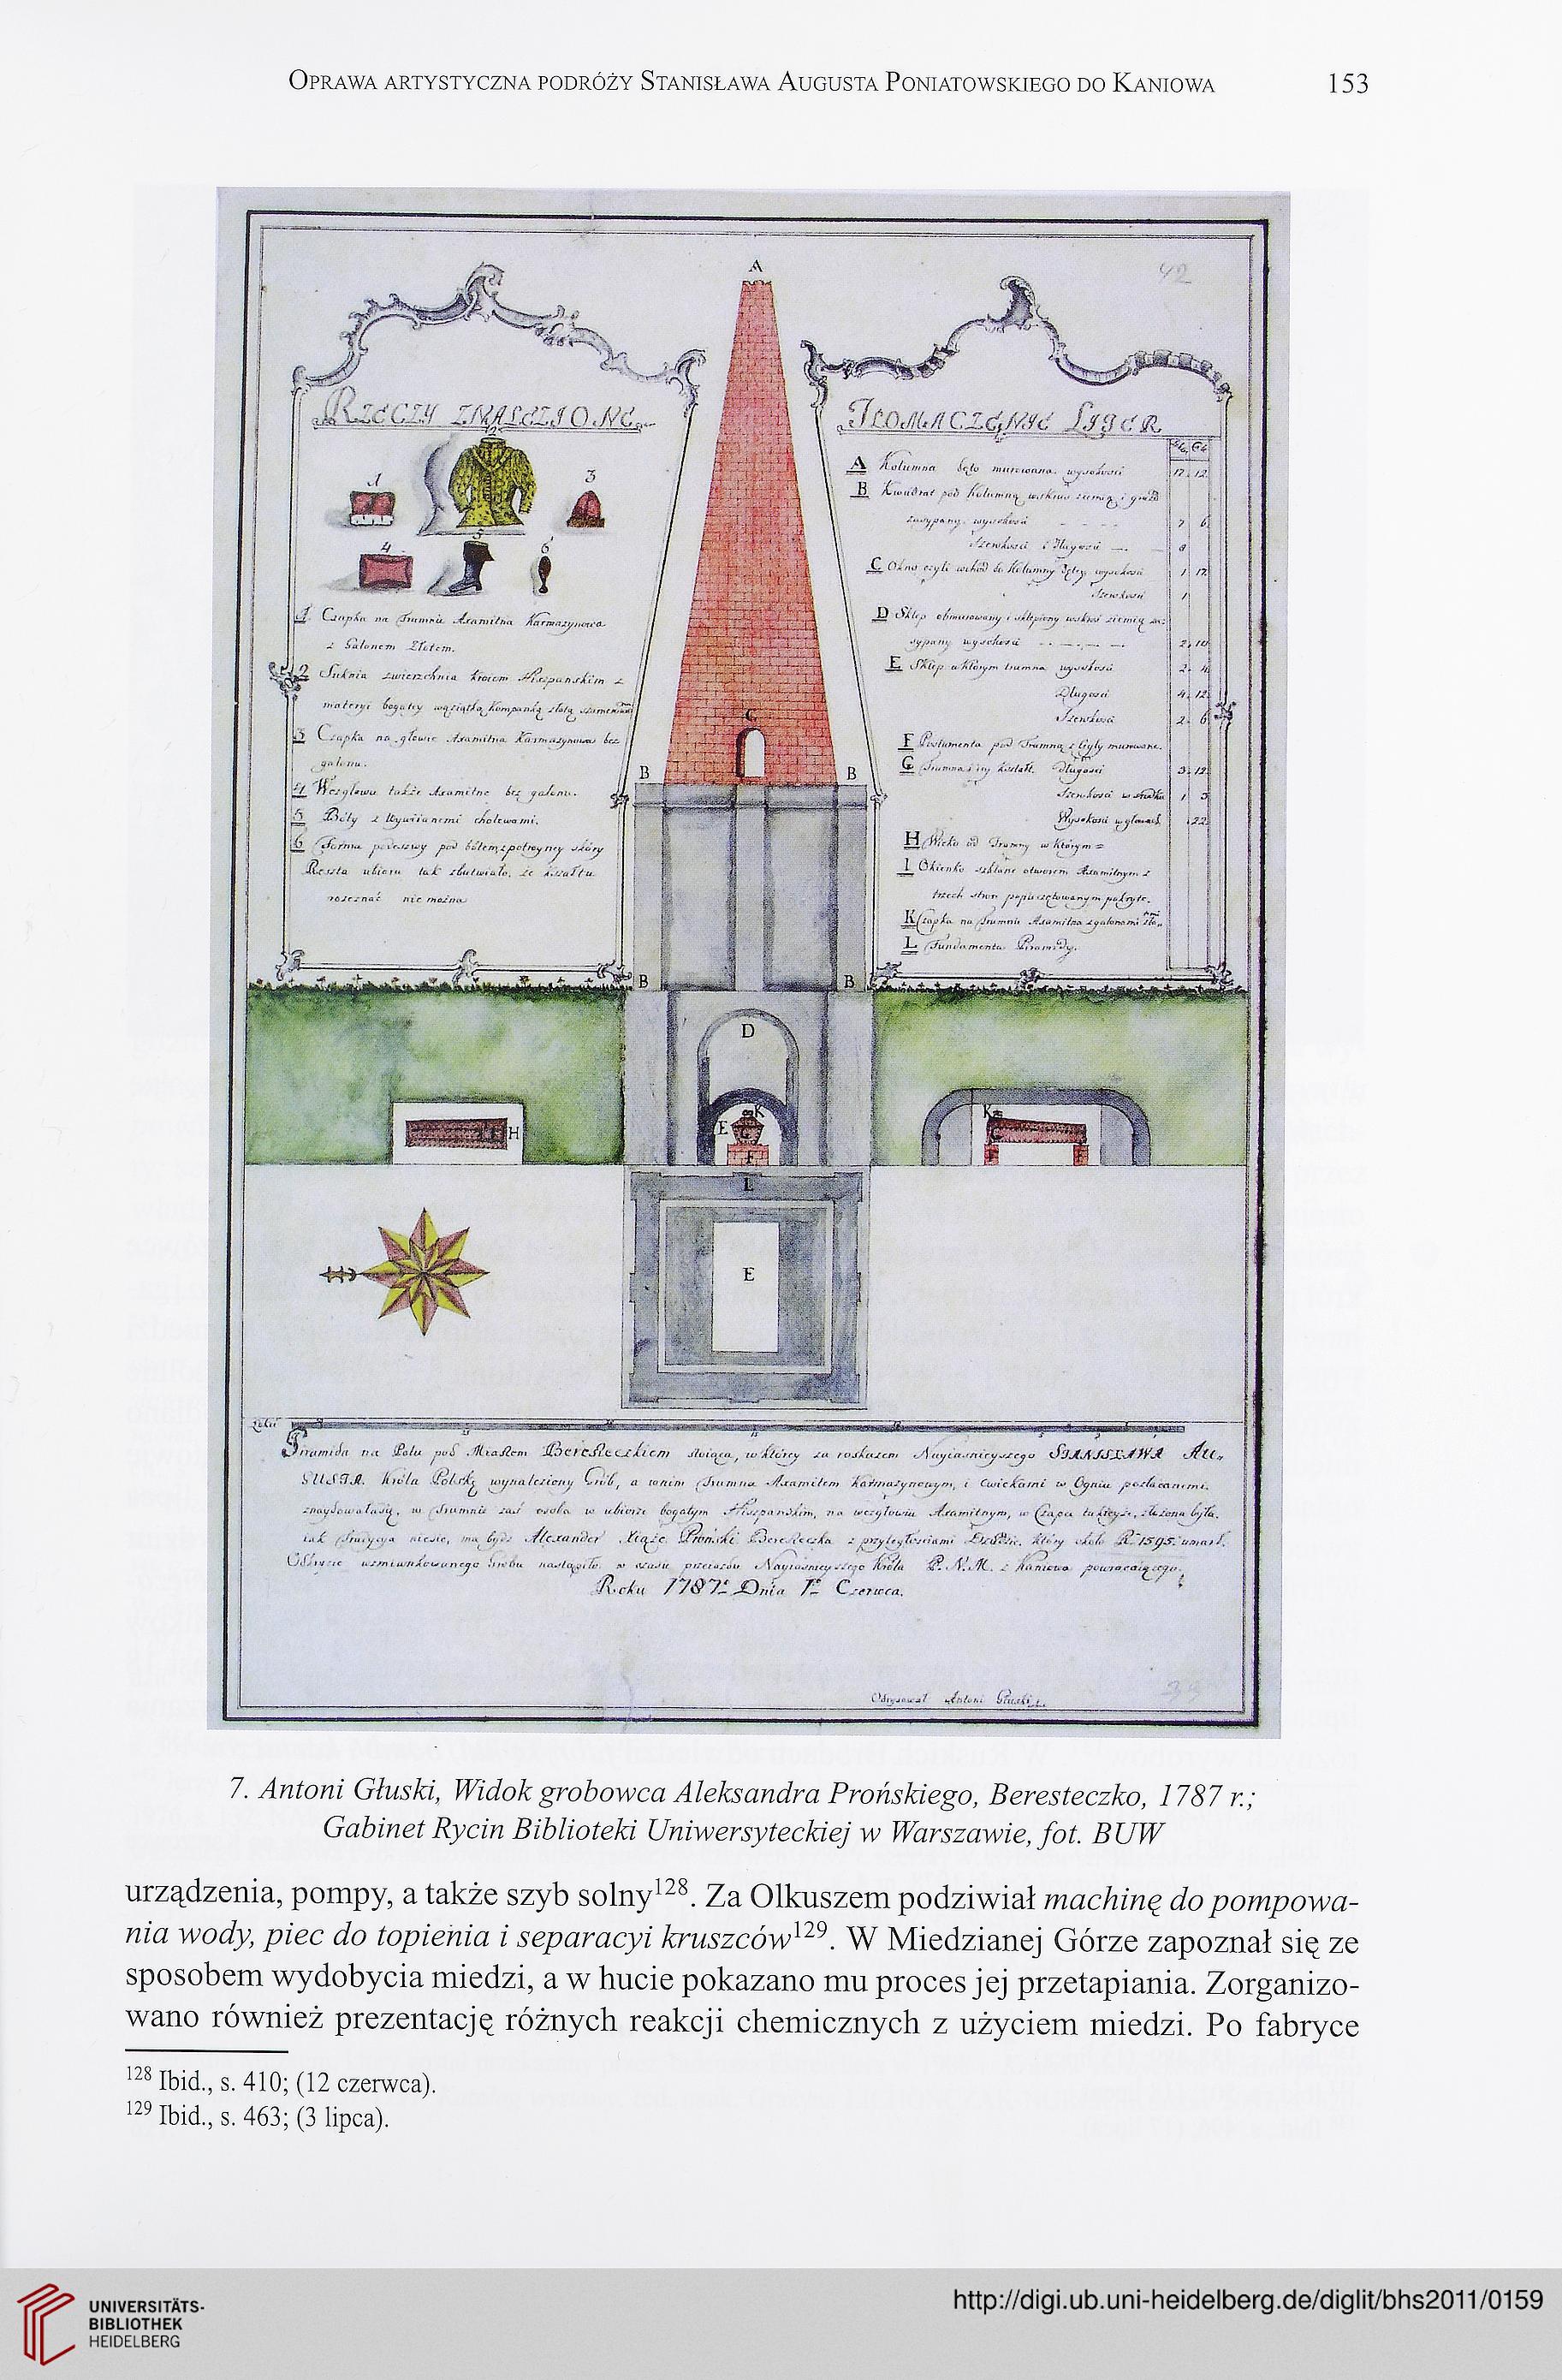 OPRAWA ARTYSTYCZNA PODRÓŻY STANISŁAWA AUGUSTA PONIATOWSKIEGO DO KANIOWA 153
42
A
RZECZY ZNALEZIONE
1 2 3
4 5 6
1 Czapka na Trumnie Axamitna Karmazynowa
z Galonem Złotem.
2 Suknia zwierzchnia kroiem Hiszpanskim z
materyi bogatey
3 Czapka na głowie Axamitna Karmazynowa bez
galonu.
4 Wezgłowie także Axamitne bez galonu.
5 Bóty z Wywiianemi cholewami.
6 Forma podeszwy pod bótem skóry
Reszta ubioru tak zbutwiało, że kształtu
rozeznać nie można
TŁOMACZENIE LITER
A Kolumna murowana wysokości 17. 12
B Kwadrat pod Kolumną ziemią i
zasypany, wysokości 7 6
Szerokości i Długości
C Okno czyli wchod do Kolumny wysokości
Szerokości 1
D Sklep obmurowany i sklepiony ziemią za-
sypany wysokości
E Sklep w którym trumna wysokości
Długości 4. 12
Szerokości 2. 6
F Postumenta pod Trumną z Cegły murowane.
G Trumna i iey kształt. Długości 3. 12
Szerokości
Wysokości w głowach
H Wieko od Trumny w którym
I Okienko szklane otworem Axamitnym z
trzech stron pokryte.
K Czapka na Trumnie Axamitna z galonami
L Fundamenta Piramidy.
C
B B
B B
D
H
E K G F
K G F F
L
E
Piramida na Polu pod Miastem Beresteczkiem stoiąca, w którey za roskazem Nayiasnieyszego STANISŁAWA AU-
GUSTA Króla Polskę wynaleziony Grób, a w nim Trumna Axamitem Karmazynowym, i cwiekami w Ogniu pozłacanemi
znaydowała się, w Trumnie zaś osoba w ubiorze bogatym Hiszpanskim, na wezgłowiu Axamitnym, w Czapce takieyże, złożona była.
iak Tradycya niesie, ma bydz Alexander Xiąże Pronski Beresteczka z przyległosciami Dziedzic, który około R. 1595. umarł.
Odkrycie wzmiankowanego Grobu nastąpiło w czasie przeiazdu Nayiasnieyszego Króla P. N. M. z Kaniowa powracaiącego.
Roku 1787. Dnia Czerwca.
Odrysował Antoni Głuski
7. Antoni Głuski, Widok grobowca Aleksandra Prońskiego, Beresteczko, 1787 r.;
Gabinet Rycin Biblioteki Uniwersyteckiej w Warszawie, fot. BUW
urządzenia, pompy, a także szyb solny128. Za Olkuszem podziwiał machinę do pompowa-
nia wody, piec do topienia i separacyi kruszców129. W Miedzianej Górze zapoznał się ze
sposobem wydobycia miedzi, a w hucie pokazano mu proces jej przetapiania. Zorganizo-
wano również prezentację różnych reakcji chemicznych z użyciem miedzi. Po fabryce
128 Ibid., s. 410; (12 czerwca).
129 Ibid., s. 463; (3 lipca).
UNIVERSITÄTS-
BIBLIOTHEK
HEIDELBERG
http://digi.ub.uni-heidelberg.de/diglit/bhs2011/0159